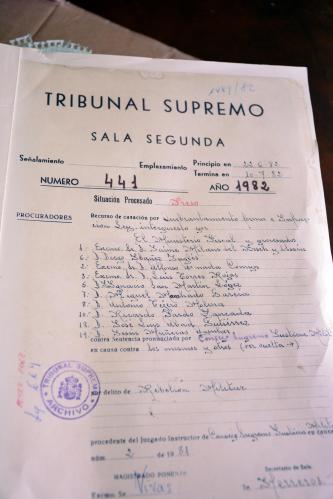 1181/82
TRIBUNAL SUPREMO
SALA SEGUNDA
Señalamiento
Emplazamiento
Principio en 22.6.82
Termina en 10.7.82
NUMERO 441 AÑO 1982
Situación Procesado Preso
PROCURADORES
Recurso de casación por Quebrantamiento forma e Infrac-
Ley, interpuesto por
El Ministerio Fiscal y procesados
1. Excmo. Sr. D. Jaime Milans del Bosch y Ussia
2. D. Diego Ibáñez Inglés
3. Excmo. Sr. D. Alfonso Armada Comyn
4. D. Luis Torres Rojas
5. D. José Ignacio San Martín López
6. D. Miguel Manchado García
7. D. Antonio Tejero Molina
8. D. Ricardo Pardo Zancada
9. D. José Luis Abad Gutiérrez
10. D. Jesús Muñecas Aguilar
contra Sentencia pronunciada por Consejo Supremo Justicia Milit
en causa contra los mismos y otros (ver vuelta →)
TRIBUNAL SUPREMO
ARCHIVO
delito de Rebelión Militar
procedente del Juzgado Instructor de Consejo Supremo Justicia Milit
en causa núm. 2 de 1981
MAGISTRADO PONENTE
Secretaría de Sala
Excmo. Sr. Vivas
Sr. Herreros